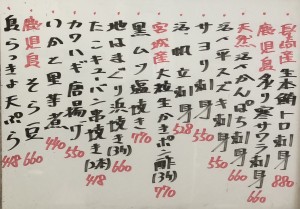 長崎産 生本鮪トロ刺身 880
鹿児島 釣り寒サワラ刺身 660
天然 活〆かんぱち刺身 660
活〆平スズキ刺身 550
サヨリ刺身 550
活帆立刺身 528
宮城産 大粒生かきポン酢 770
黒ムツ塩焼き 770
地はまぐり浜焼き(3ヶ) 660
たこキューバン串焼き(2本) 418
カワハギ唐揚げ 550
いかと里芋煮 440
鹿児島 そら豆 660
島らっきょ天ぷら 418